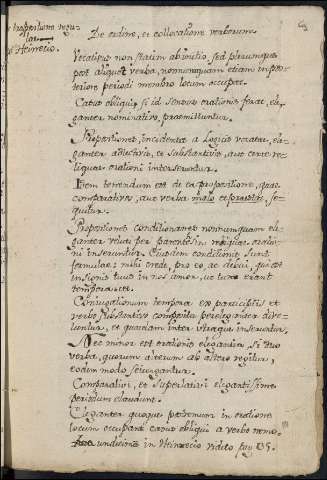 e propositione regu-
lari
Heinecio.
63
De ordine, et collocatione verborum.
Vocativus non statim ab initio, sed plerumque
post aliquot verba, nonnumquam etiam in pos-
teriore periodi membro locum occupet.
Casus obliqui, si id sensus orationis ferat, ele-
ganter nominativo, praemittuntur.
Propositiones, incidentes a Logicis vocatae, ele-
ganter adjectivis, et substantivis, aut certe re-
liquae orationi interseruntur.
Idem tenendum est de ea propositione, quae
comparativa, aut verba malo et praestat, se-
quitur.
Propositiones conditionanes nonnumquam ele-
ganter veluti per parenthesin mediae oratio-
ni inseruntur. Ejusdem conditionis sunt
formulae: mihi crede, pro eo, ac debui, qui est
in tuus in nos amor, ut tunc erant
tempora: et.
Conjugationum tempora ex participiis et
verbo substantivo composita pereleganter divel-
luntur, et quaedam inter utraque inseruntur.
Nec minor est orationis elegantia, si duo
verba, quorum alterum ab altero regitur,
eodem modo sejungantur.
Comparativi, et superlativi elegantissime
periodum claudunt.
Eleganter quoque postremum in oratione
locum occupant casus obliqui a verbo remo-
in Heinecio videto pag 135.